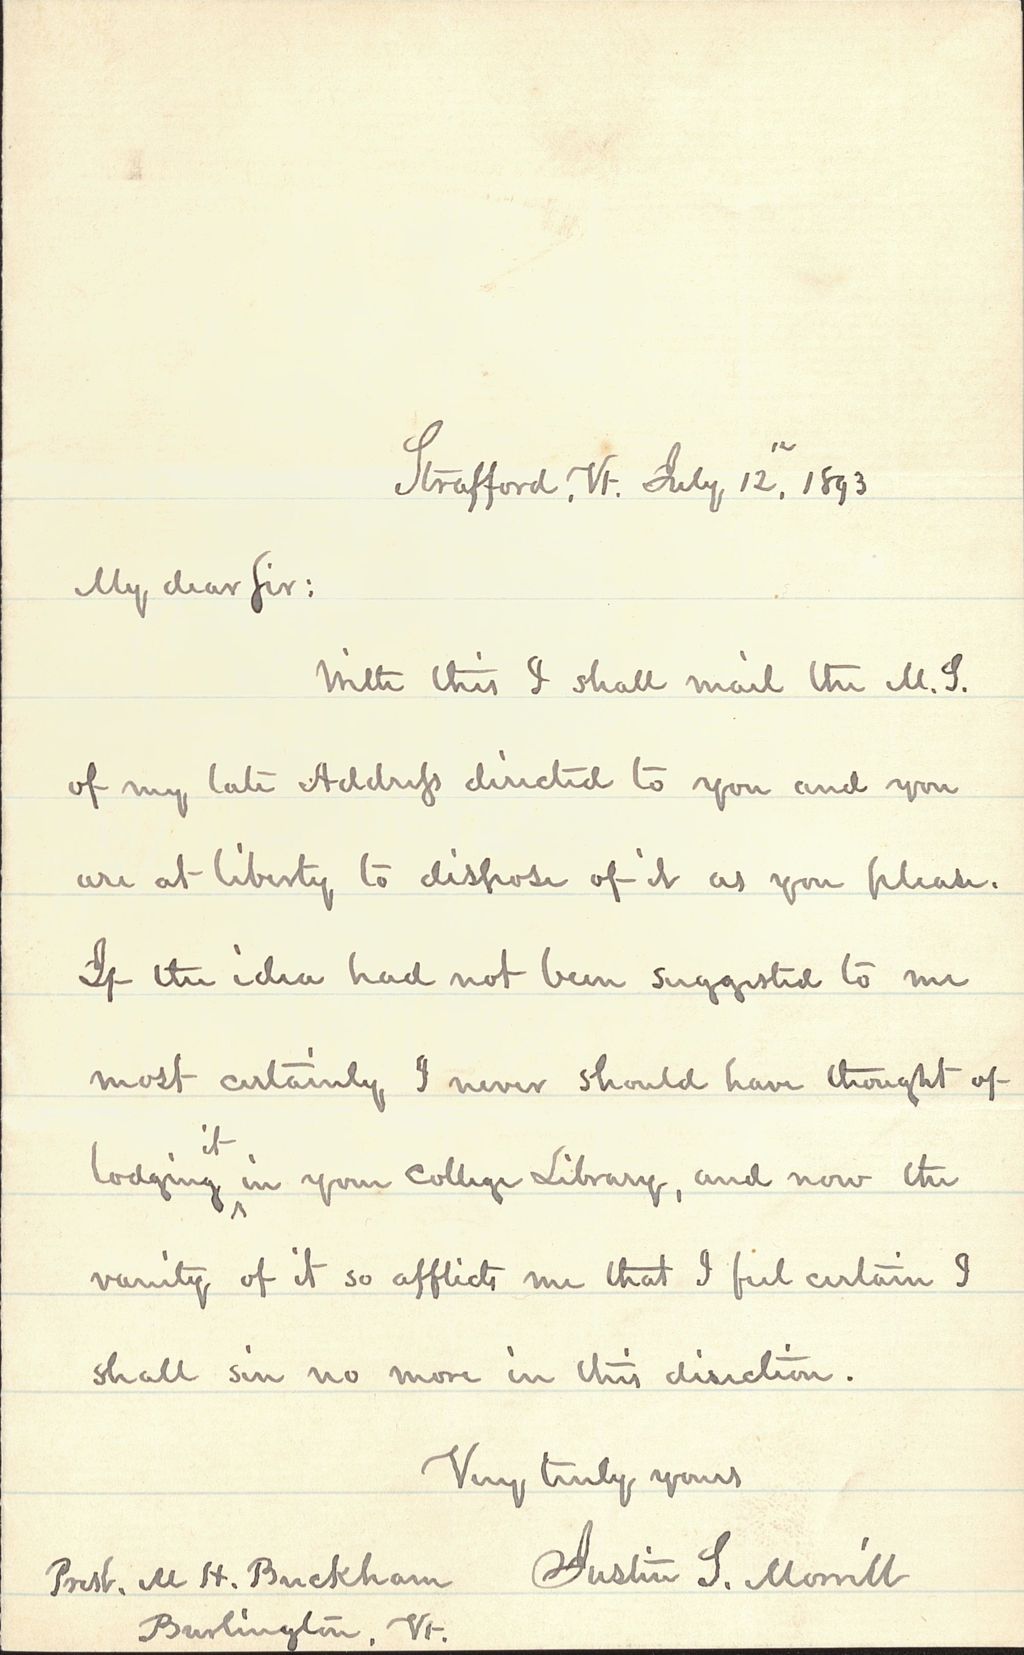 Strafford, Vt. July 12th, 1893
My dear Sir:
With this I shall mail the M.S.
of my late Address directed to you and you
are at liberty to dispose of it as you please.
If the idea had not been suggested to me
most certainly I never should have thought of
lodging it in your College Library, and now the
vanity of it so afflicts me that I feel certain I
shall sin no more in this direction.
Very truly yours
Justin S. Morrill
Prest. M H. Buckham
Burlington, Vt.